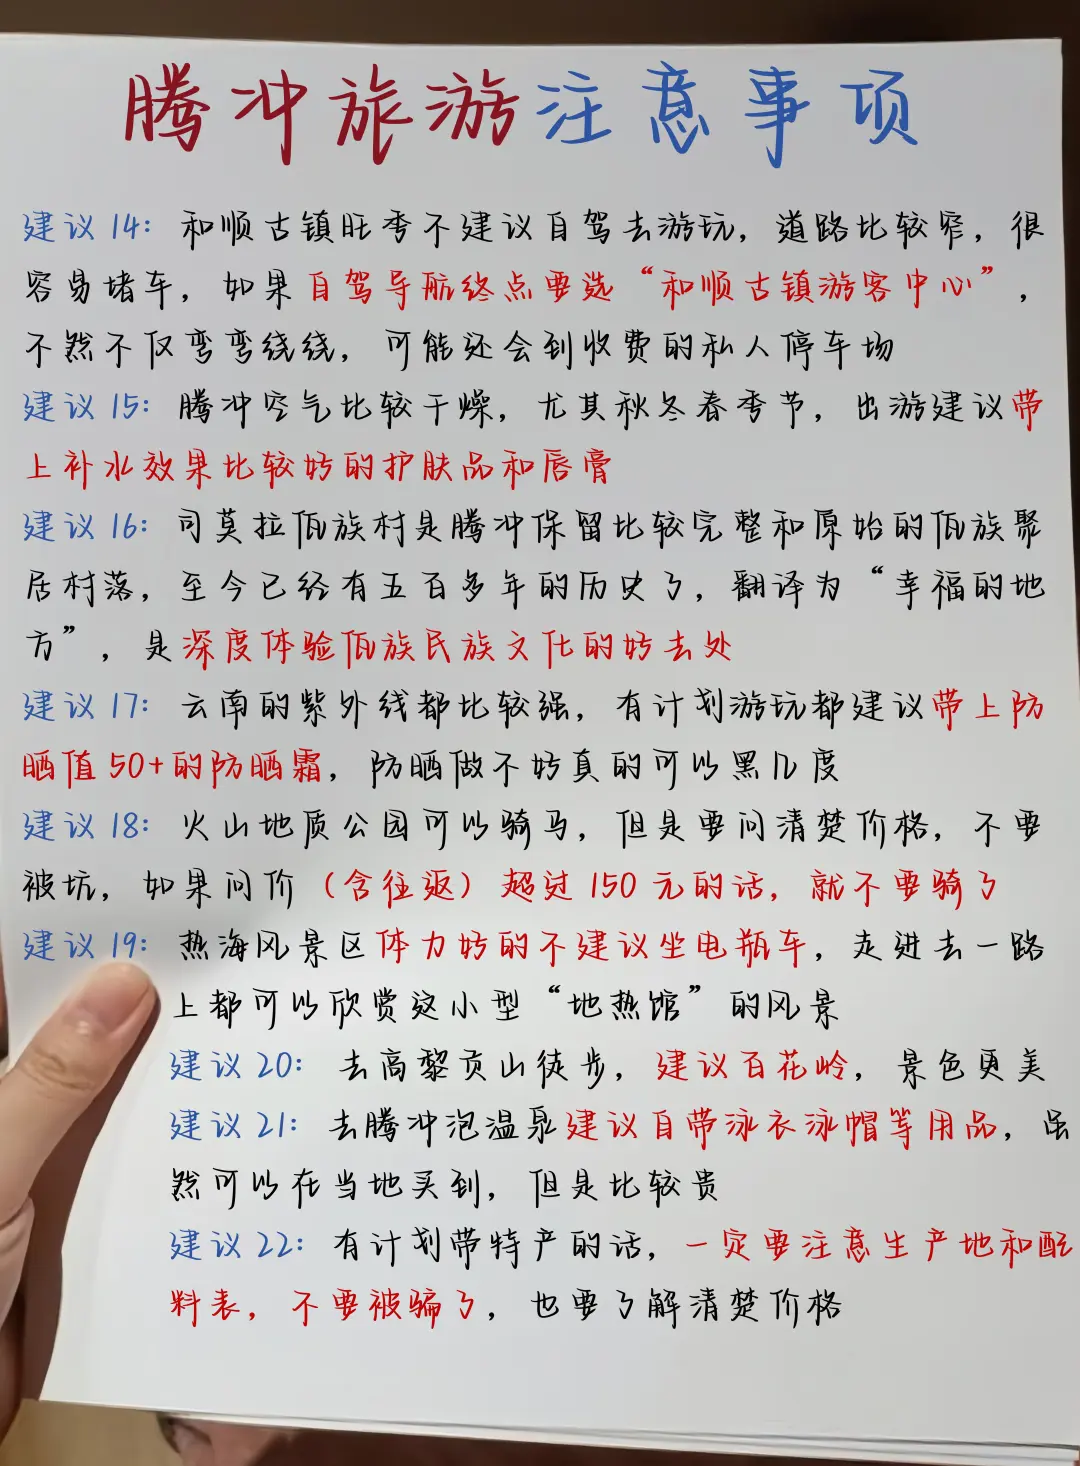 腾冲旅游注意事项
建议14：和顺古镇旺季不建议自驾去游玩，道路比较窄，很
容易堵车，如果自驾导航终点要选“和顺古镇游客中心”，
不然不仅弯弯绕绕，可能还会到收费的私人停车场
建议15：腾冲空气比较干燥，尤其秋冬春季节，出游建议带
上补水效果比较好的护肤品和唇膏
建议16：司莫拉佤族村是腾冲保留比较完整和原始的佤族聚
居村落，至今已经有五百多年的历史了，翻译为“幸福的地
方”，是深度体验佤族民族文化的好去处
建议17：云南的紫外线都比较强，有计划游玩都建议带上防
晒值50+的防晒霜，防晒做不好真的可以黑几度
建议18：火山地质公园可以骑马，但是要问清楚价格，不要
被坑，如果问价（含往返）超过150元的话，就不要骑了
建议19：热海风景区体力好的不建议坐电瓶车，走进去一路
上都可以欣赏这小型“地热馆”的风景
建议20：去高黎贡山徒步，建议百花岭，景色更美
建议21：去腾冲泡温泉建议自带泳衣泳帽等用品，虽
然可以在当地买到，但是比较贵
建议22：有计划带特产的话，一定要注意生产地和配
料表，不要被骗了，也要了解清楚价格